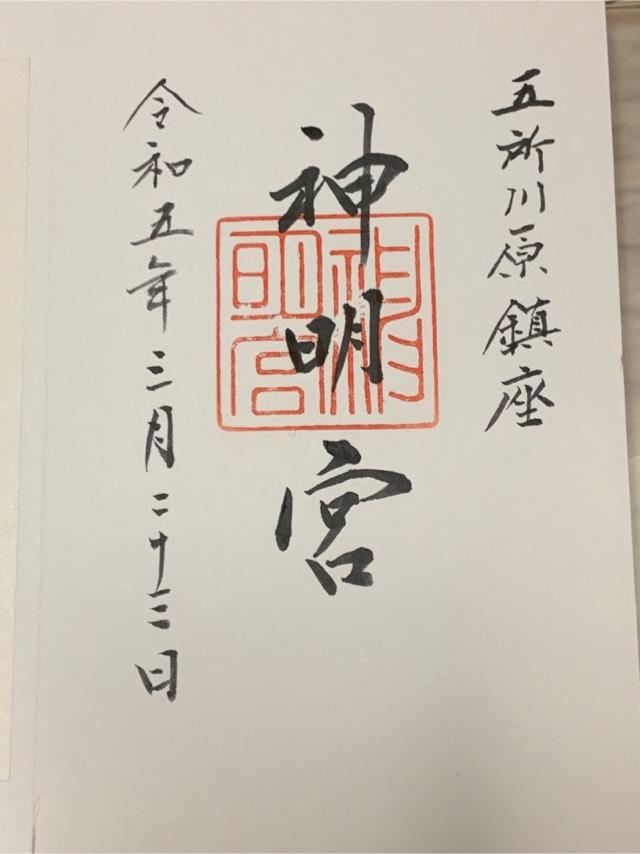 五所川原鎮座
神明宮
令和五年三月二十三日